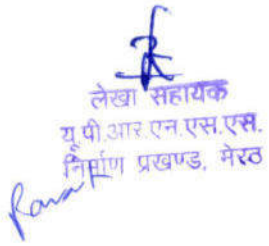 लेखा सहायक
यू.पी.आर.एन.एस.एस.
निर्माण प्रखण्ड, मेरठ